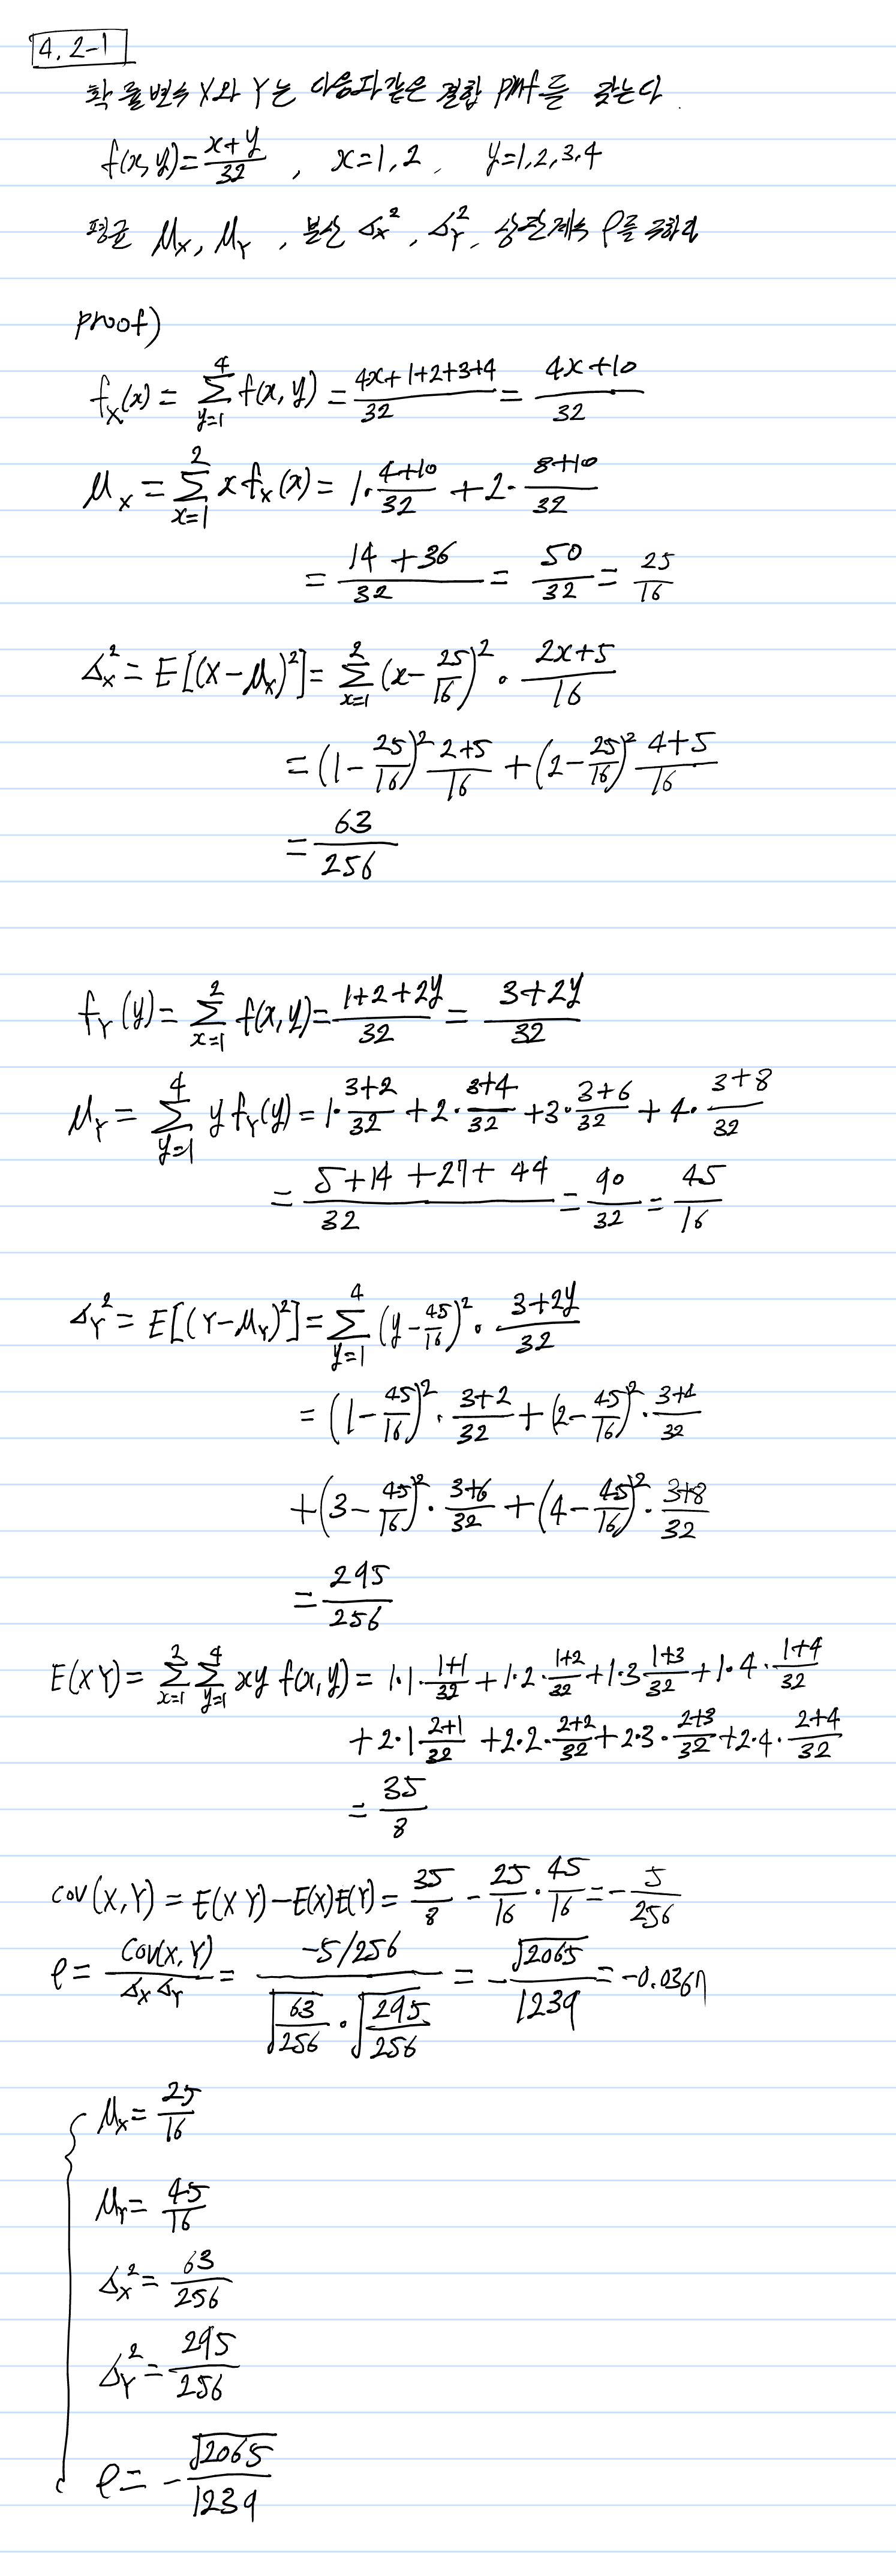 4.2-1
확률변수 X와 Y는 다음과같은 결합 pmf를 갖는다.
f(x,y)=\frac{x+y}{32}, x=1,2, y=1,2,3,4
평균 μ_X, μ_Y, 분산 σ_X^2, σ_Y^2, 상관계수 ρ를 구하라
proof)
f_X(x) = \sum_{y=1}^{4} f(x,y) = \frac{4x+1+2+3+4}{32} = \frac{4x+10}{32}
μ_X = \sum_{x=1}^{2} x f_X(x) = 1·\frac{4+10}{32} + 2·\frac{8+10}{32}
= \frac{14+36}{32} = \frac{50}{32} = \frac{25}{16}
σ_X^2 = E[(X-μ_X)^2] = \sum_{x=1}^{2} (x-\frac{25}{16})^2 · \frac{2x+5}{16}
= (1-\frac{25}{16})^2 \frac{2+5}{16} + (2-\frac{25}{16})^2 \frac{4+5}{16}
= \frac{63}{256}
f_Y(y) = \sum_{x=1}^{2} f(x,y) = \frac{1+2+2y}{32} = \frac{3+2y}{32}
μ_Y = \sum_{y=1}^{4} y f_Y(y) = 1·\frac{3+2}{32} + 2·\frac{3+4}{32} + 3·\frac{3+6}{32} + 4·\frac{3+8}{32}
= \frac{5+14+27+44}{32} = \frac{90}{32} = \frac{45}{16}
σ_Y^2 = E[(Y-μ_Y)^2] = \sum_{y=1}^{4} (y-\frac{45}{16})^2 · \frac{3+2y}{32}
= (1-\frac{45}{16})^2 · \frac{3+2}{32} + (2-\frac{45}{16})^2 · \frac{3+4}{32}
+ (3-\frac{45}{16})^2 · \frac{3+6}{32} + (4-\frac{45}{16})^2 · \frac{3+8}{32}
= \frac{295}{256}
E(XY) = \sum_{x=1}^{2} \sum_{y=1}^{4} xy f(x,y) = 1·1·\frac{1+1}{32} + 1·2·\frac{1+2}{32} + 1·3 \frac{1+3}{32} + 1·4·\frac{1+4}{32}
+ 2·1 \frac{2+1}{32} + 2·2·\frac{2+2}{32} + 2·3·\frac{2+3}{32} + 2·4·\frac{2+4}{32}
= \frac{35}{8}
cov(X,Y) = E(XY)-E(X)E(Y) = \frac{35}{8} - \frac{25}{16}·\frac{45}{16} = -\frac{5}{256}
ρ = \frac{Cov(X,Y)}{σ_X σ_Y} = \frac{-5/256}{\sqrt{\frac{63}{256}}·\sqrt{\frac{295}{256}}} = -\frac{\sqrt{2065}}{1239} = -0.0367
μ_X = \frac{25}{16}
μ_Y = \frac{45}{16}
σ_X^2 = \frac{63}{256}
σ_Y^2 = \frac{295}{256}
ρ = -\frac{\sqrt{2065}}{1239}